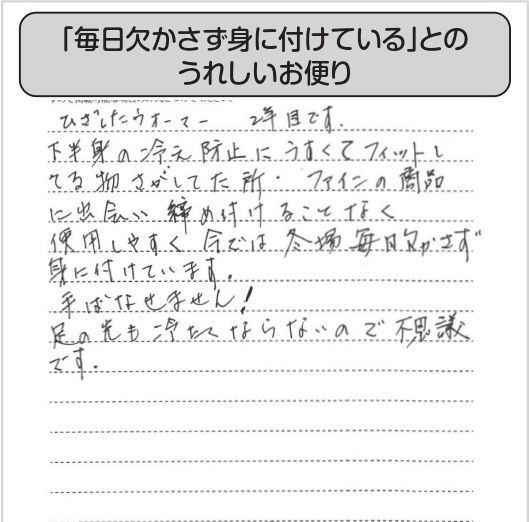 「毎日欠かさず身に付けている」との
うれしいお便り
ひざしたウォーマー 2年目です.
下半身の冷え防止にうすくてフィットし
てる物さがしてた所・ファインの商品
に出会い締め付けることなく
使用しやすく今では冬場毎日欠かさず
身に付けています.
手ばなせません!
足の先も冷たくならないので不思議
です.